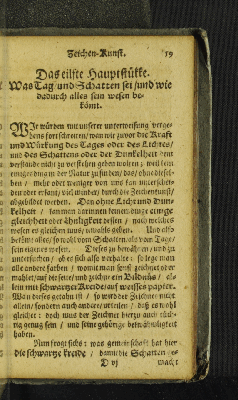 Zeichen-Kunst. 19
Das eilfte Hauptstükke.
Was Tag/und Schatten sei/und wie
dadurch alles sein wesen be-
kömt.
WIr würden mit unserer unterweisung verge-
bens fortschreiten/ wan wir zuvor die Kraft
und Würkung des Tages oder des Lichtes/
und des Schattens oder der Dunkelheit dem
verstande nicht zu verstehen geben wolten; weil kein
einiges ding in der Natur zu finden/ das/ ohne diesel-
ben / mehr oder weniger von uns kan unterschie-
den oder erkant/ viel minder/ durch die Zeichenkunst/
abgebildet werden. Dan ohne Licht und Dun-
kelheit / kan man darinnen keine einige
gleichheit oder Ähnligkeit sehen / nach welches
wesen es gleichen mus/ etwahs geben. Und also
bekömt alles/ so wohl vom Schatten als vom Tage/
sein eigenes wesen. Dieses zu bewähren/ und zu
untersuchen / ob es sich also verhalte: so lege man
alle andere farben / womit man sonst zeichnet oder
mahlet/auf die seite/ und zeichne ein Bildnüs/ al-
lein mit schwartzer Kreide/auf weisses papier.
Wan dieses getahn ist / so wird der Zeichner nicht
allein / sondern auch andere/ / daß es wohl
gleichet: doch mus der Zeichner hierzu auch tüch-
tig genug sein / und seine gehörige
haben.
Nun fragt sichs: was gemeinschaft hat hier
die schwartze kreide / damit die Schatten ge-
D vj macht